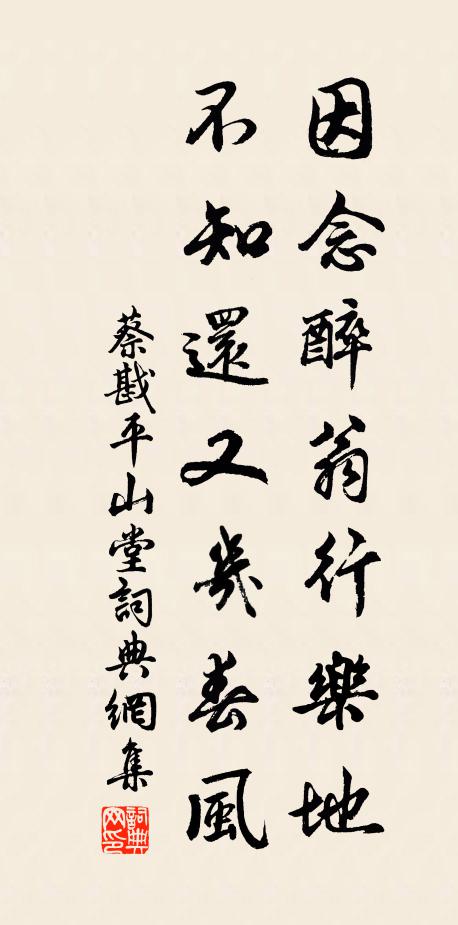 因念醉翁行樂地
不知還又幾春風
蔡戡平山堂詞典網集
詞典網印